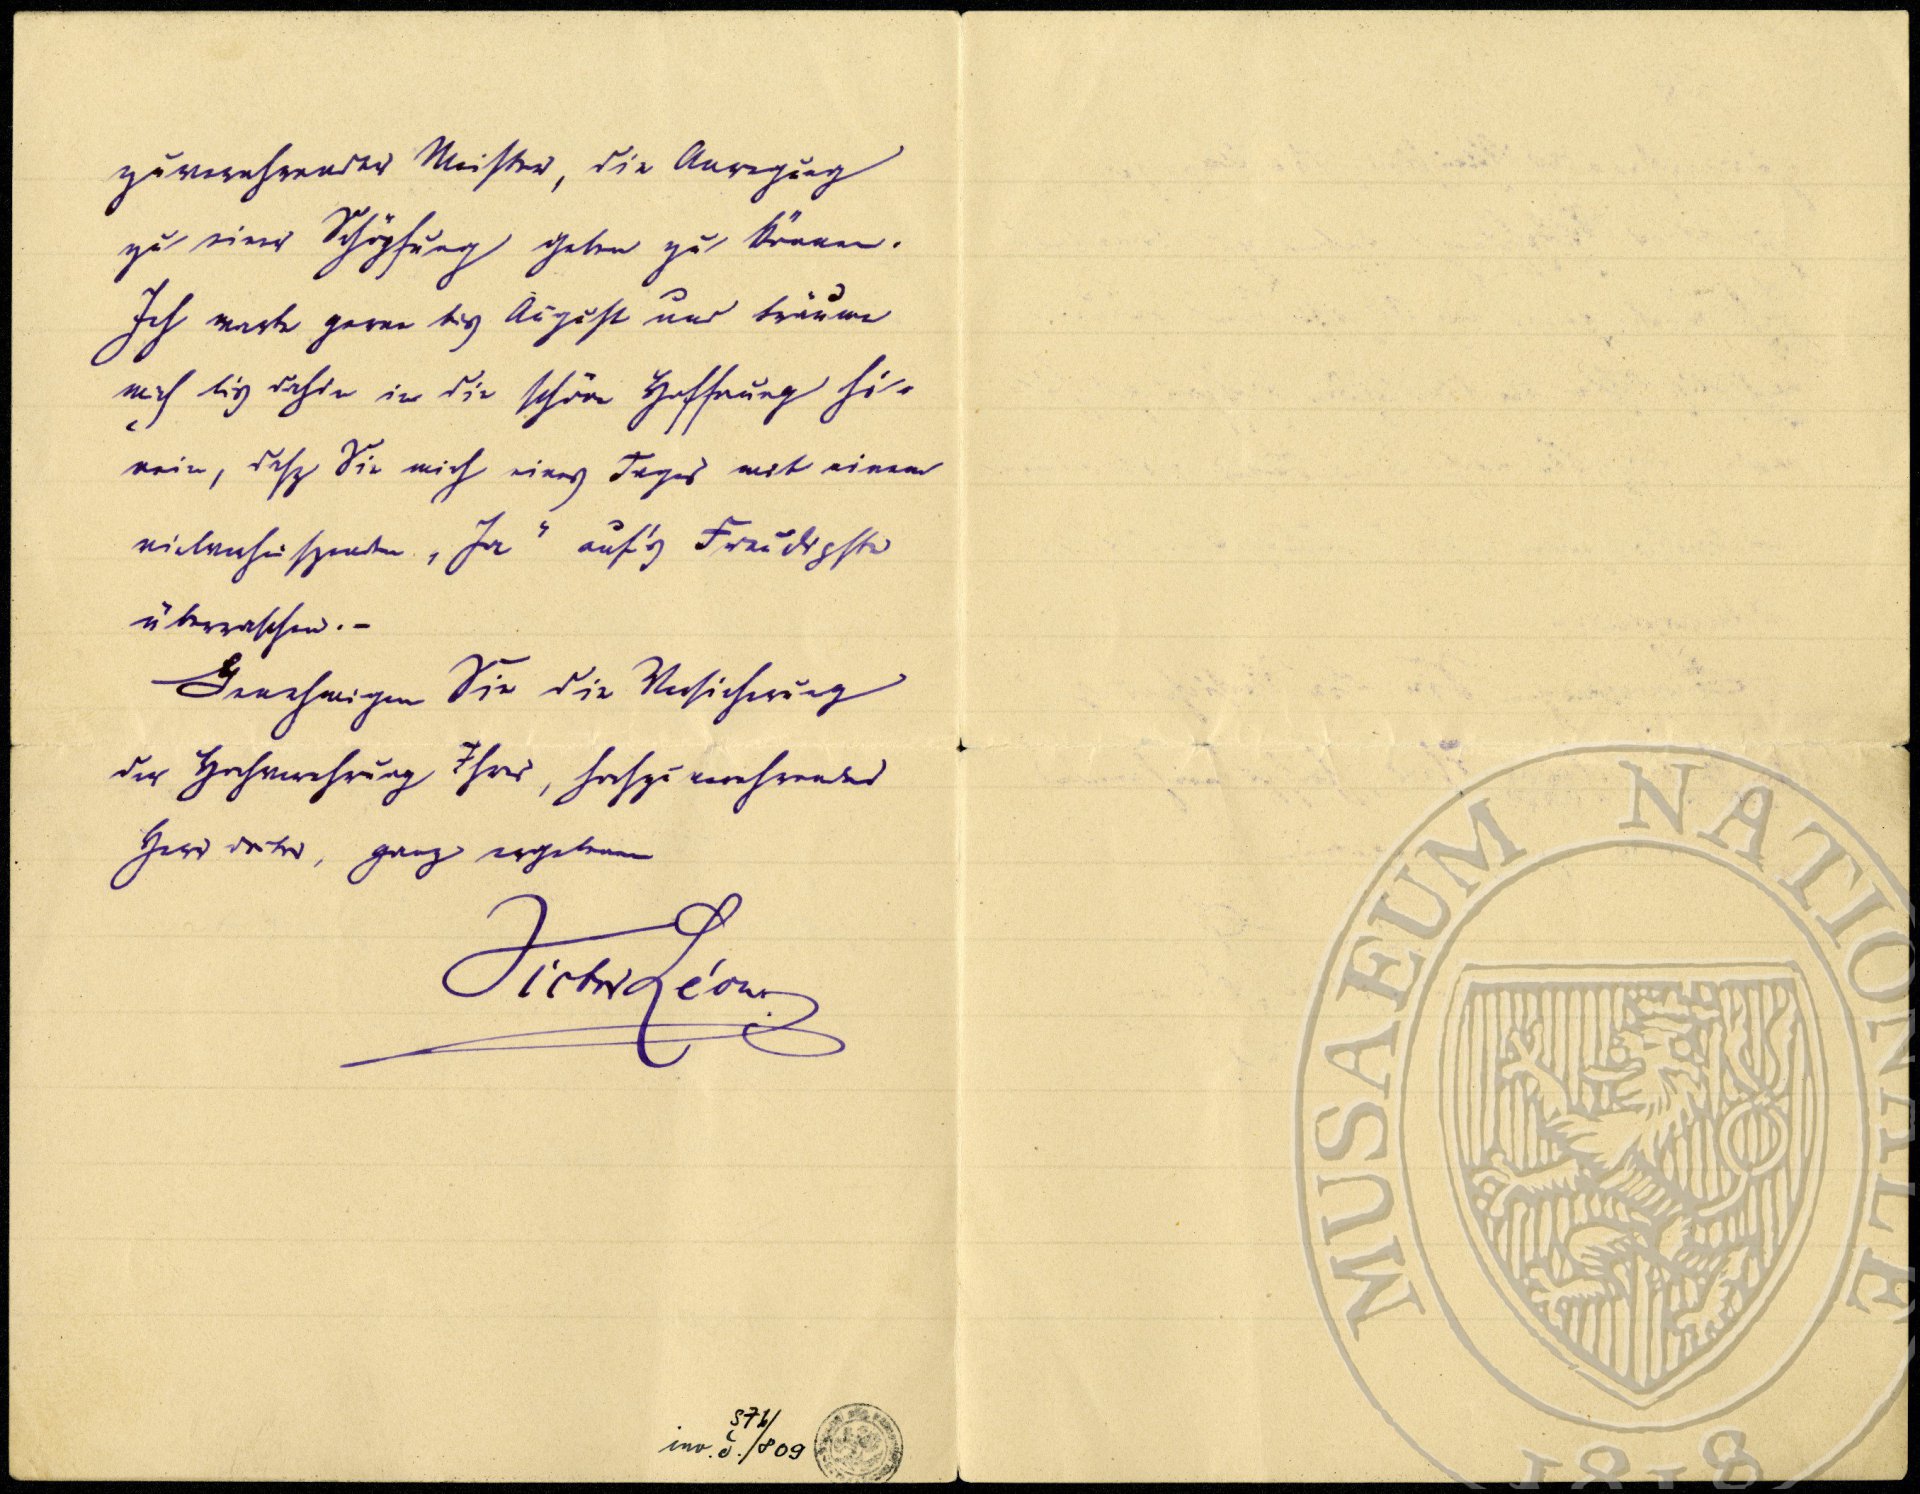 zuverehrender Meister, die Anregung
zu einer Schöpfung geben zu können.
Ich warte gerne bis August und träume
mich bis dahin in die schöne Hoffnung hi-
nein, dasz Sie mich eines Tages mit einem
vielverheiszenden „Ja“ auf's Freudigste
überraschen. –
Genehmigen Sie die Versicherung
der Hochverehrung Ihres, hochzuverehrender
Herr, ganz ergebenen
Victor Léon.
S76/
inv. č./809
MUSAEUM NATIONALE
1818